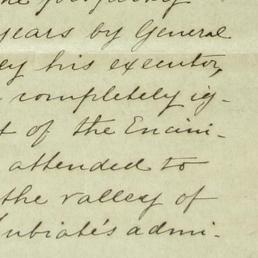 years by General
ey his executor,
completely ig-
t of the Encini-
attended to
the valley of
ubiate's admi-